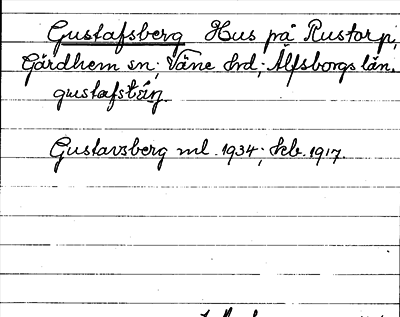 Gustafsberg Hus på Rustorp,
Gärdhem sn; Väne hrd; Älfsborgs län.
Gustavsberg ml. 1934; kb. 1917.